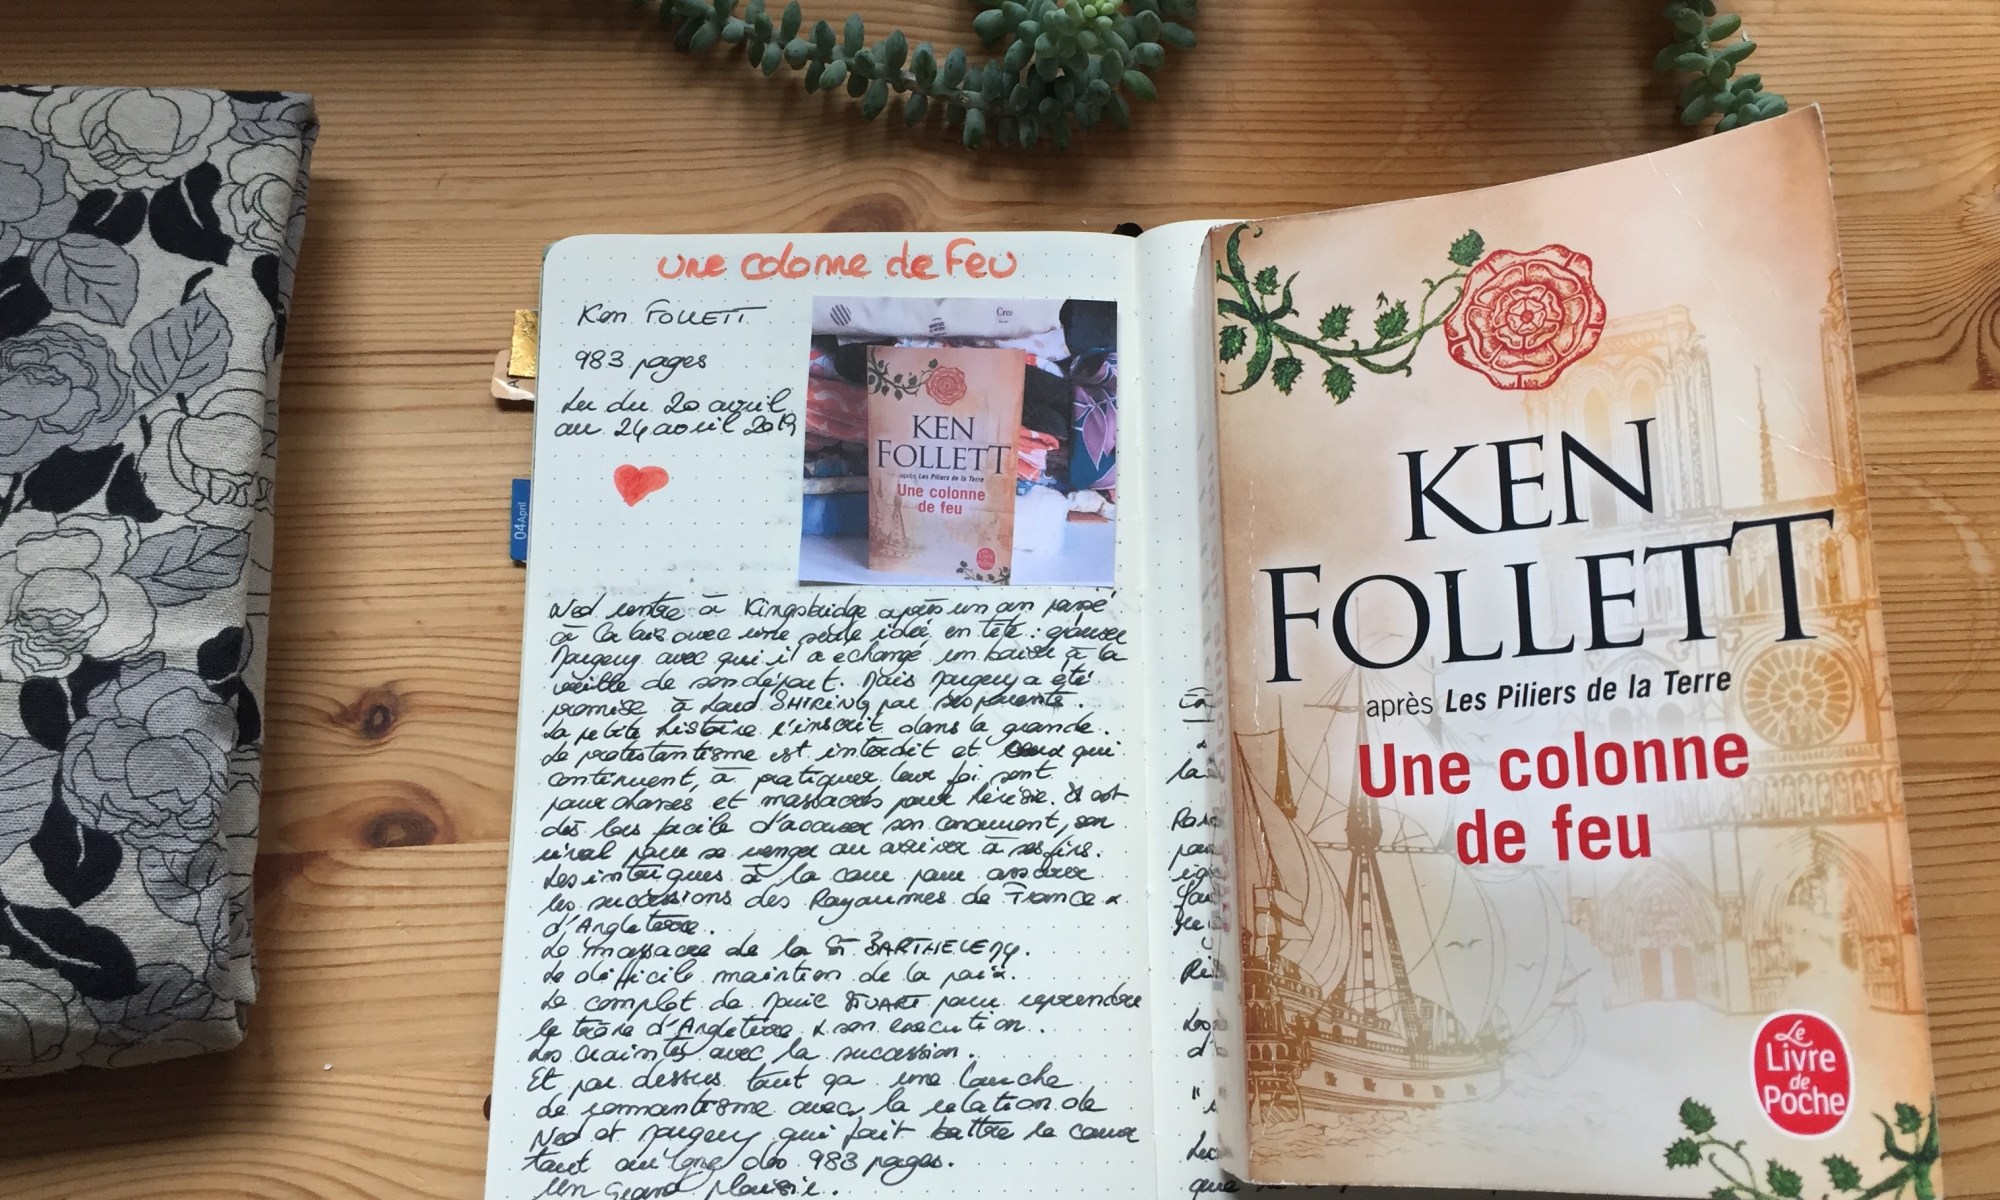 une colonne de Feu
Ken FOLLETT
983 pages
Lu du 20 avril
au 24 avril 2019
04 April
KEN
FOLLETT
après Les Piliers de la Terre
Une colonne
de feu
Ned rentre à Kingsbridge après un an passé
à Calais avec une seule idée en tête : épouser
Margery avec qui il a echangé un baiser à la
veille de son départ. Mais Margery a été
promise à Lord SHIRING par ses parents.
La petite histoire s'inscrit dans la grande.
Le protestantisme est interdit et ceux qui
continuent, à pratiquer leur foi sont
pourchassés et massacrés pour hérésie. Il est
dès lors facile d'accuser son concurrent, son
rival pour se venger ou arriver à ses fins.
Les intrigues à la cour pour assurer
les successions des Royaumes de France &
d'Angleterre.
Le massacre de la St BARTHELEMY.
Le difficile maintien de la paix.
Le complot de Marie STUART pour reprendre
le trône d'Angleterre & son execution.
Les craintes avec la succession.
Et par dessus tout ça une touche
de romantisme avec la relation de
Ned et Margery qui fait battre le coeur
tout au long des 983 pages.
Un Grand plaisir.
KEN
FOLLETT
après Les Piliers de la Terre
Une colonne
de feu
Le
Livre
de
Poche